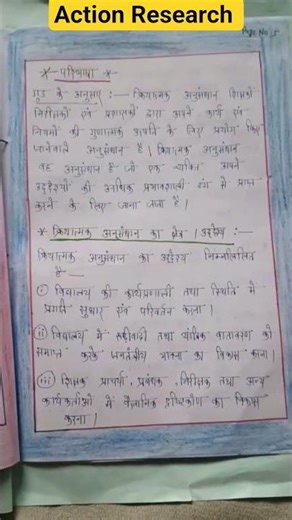 Action Research
Page No. 5
* परिभाषा *
गुड के अनुसार :— क्रियात्मक अनुसंधान शिक्षकों
निरीक्षकों एवं प्रशासकों द्वारा अपने कार्य एवं
निर्णयों की गुणात्मक उन्नति के लिए प्रयोग किए
जानेवाले अनुसंधान है। क्रियात्मक अनुसंधान
वह अनुसंधान है जो एक व्यक्ति अपने
उद्देश्यों को अधिक प्रभावशाली ढंग से प्राप्त
करने के लिए जाना जाता है।
* क्रियात्मक अनुसंधान का क्षेत्र / उद्देश्य :—
क्रियात्मक अनुसंधान का उद्देश्य निम्नलिखित
है—
(i) विद्यालय की कार्यप्रणाली तथा स्थिति में
प्रगति सुधार एवं परिवर्तन करना।
(ii) विद्यालय में रूढ़ीवादी तथा यांत्रिक वातावरण को
समाप्त करके जनतंत्रीय भावना का विकास करना।
(iii) शिक्षक प्राचार्य, प्रबंधक, निरीक्षक तथा अन्य
कार्यकर्ताओं में वैज्ञानिक दृष्टिकोण का विकास
करना।